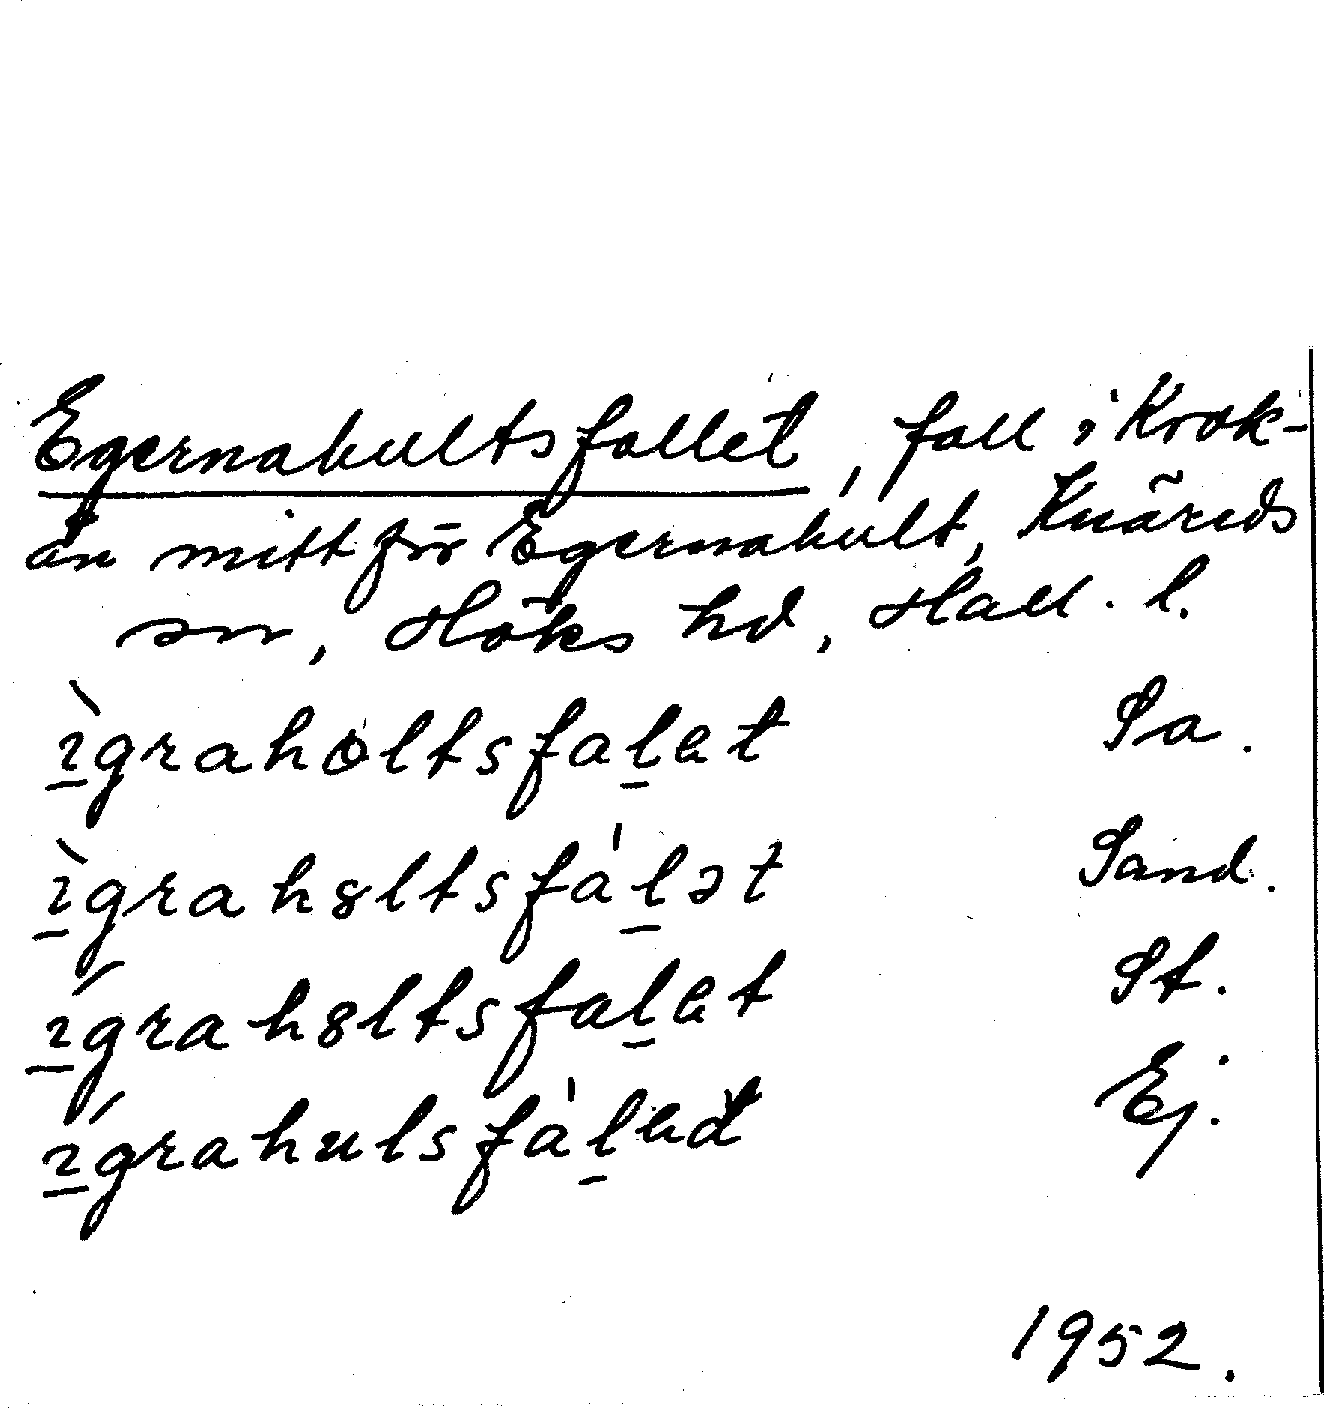 Egernahultsfallet, fall i Krok-
ån mitt för Egernahult, Knäreds
sn, Höks hd, Hall. l.
ɪ̲̀graholtsfal̲et Sa.
ɪ̲̀grah8ltsfa'l̲ət Sand.
ɪ̲́grah8ltsfal̲et St.
ɪ̲́grahulsfa'l̲ed Ej.
1952.